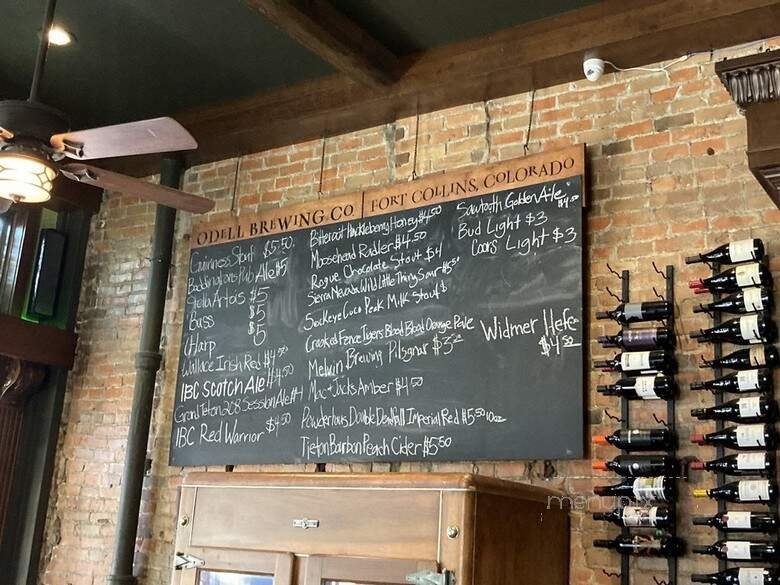 ODELL BREWING CO. | FORT COLLINS, COLORADO
Guinness Stout $5.50
Boddingtons Pub Ale $5
Stella Artois $5
Bass $5
Harp $5
Wallace Irish Red $4.50
IBC Scotch Ale $4.50
Grand Teton 208 Session Ale $4
IBC Red Warrior $4.50
Bitterroot Huckleberry Honey $4.50
Moosehead Radler $4.50
Rogue Chocolate Stout $4
Sierra Nevada Wild Little Thing Sour $5.50
Sockeye Coco Peak Milk Stout
Crooked Fence Tigers Blood Blood Orange
Melvin Brewing Pilsgnar $3
Mac + Jacks Amber $4.50
Powderhous Double Downhill Imperial Red $5.50 10oz
Tieton Bourbon Peach Cider $5.50
Sawtooth Golden Ale $4.50
Bud Light $3
Coors Light $3
Widmer Hefe
$4.50
menupix